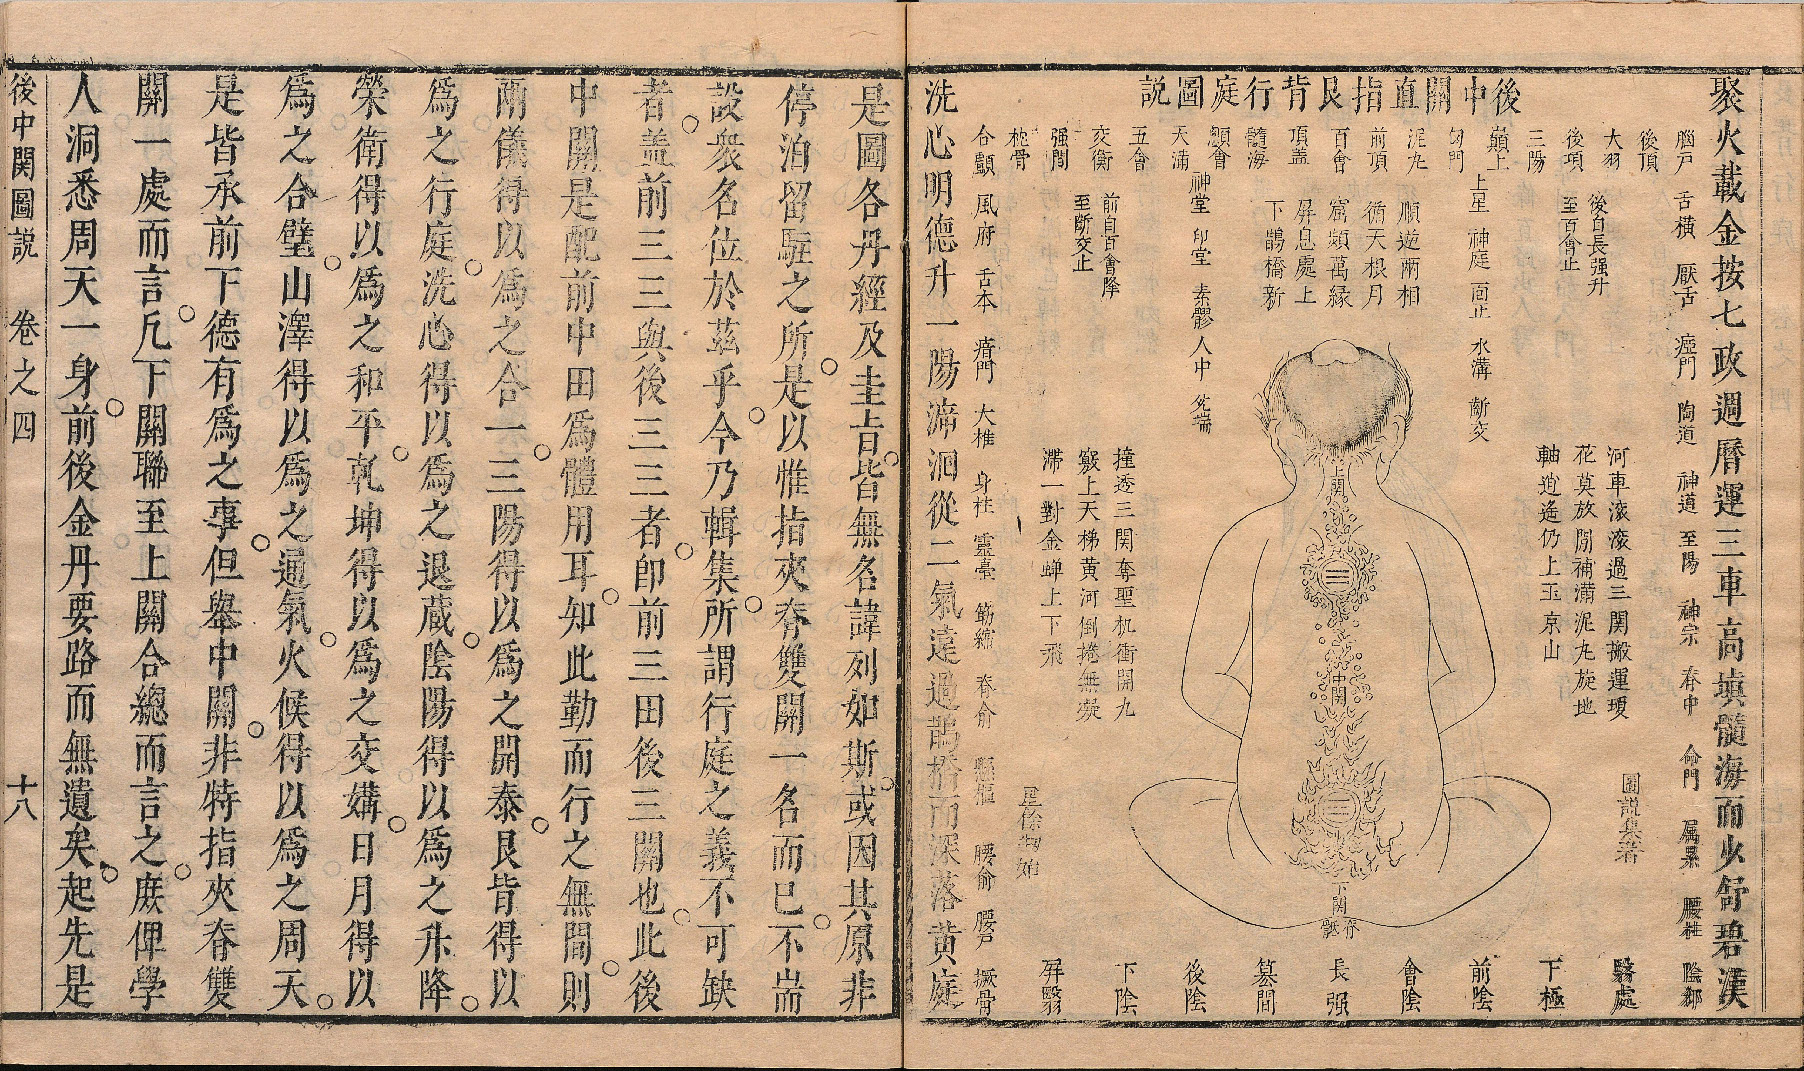 後中關直指艮背行庭圖説
聚火載金按七政週曆運三車高填髓海而火舒碧漢
腦戸 舌橫 厭舌 瘂門 陶道 神道 至陽 神宗 脊中 命門 属累 腰柱 陰鄉
後頂
大羽
後項
三陽
巔上
囟門
泥丸
前頂
百會
頂蓋
髓海
顖會
天滿
五會
交衡
强間
枕骨
後自長强升
至百會止
上星 神庭 面止 水溝 齗交
順遊兩相
循天根月
窟頻萬緣
屏息處上
下鵲橋新
神堂 印堂 素髎 人中 兌端
前自百會降
至斷交止
合顱 風府 舌本 瘖門 大椎 身柱 靈臺 筋縮 脊俞 懸樞 腰俞 腰戸 撅骨
河車滚滚過三関搬運瓊
花莫放閒補滿泥丸旋地
軸逍遙仍上玉京山
撞透三関奪聖机衝開九
竅上天梯黄河倒捲無凝
滯一對金蟬上下飛
圖説集著
上関
中関
下関
脊骶
下極
前陰
會陰
長强
篡間
後陰
下陰
屏翳
洗心明德升一陽渧洄從二氣遠過鵲橋而深落黄庭
是圖各丹經及圭㫖皆無名諱列如斯或因其原非
停泊留駐之所是以惟指夾脊雙關一名而已不耑
設衆名位於茲乎今乃輯集所謂行庭之義不可缺
者盖前三三與後三三者卽前三田後三關也此後
中關是配前中田爲體用耳知此勤而行之無間則
兩儀得以爲之合一三陽得以爲之開泰艮皆得以
爲之行庭洗心得以爲之退藏陰陽得以爲之升降
榮衛得以爲之和平乾坤得以爲之交媾日月得以
爲之合璧山澤得以爲之通氣火候得以爲之周天
是皆承前下德有爲之事但舉中關非特指夾脊雙
關一處而言凡下關聯至上關合總而言之庶俾學
人洞悉周天一身前後金丹要路而無遺矣起先是
後中関圖説 卷之四 十八